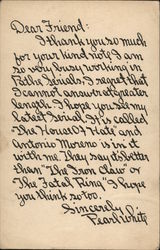 Dear Friend:
I thank you so much
for your kind note. I am
so very busy working in
Pathe Serials, I regret that
I cannot answer at greater
length. I hope you see my
latest Serial. It is called
"The House of Hate" and
Antonio Moreno is in it
with me. They say its better
than "The Iron Claw" or
"The Fatal Ring". I hope
you think so too.
Sincerely
Pearl White